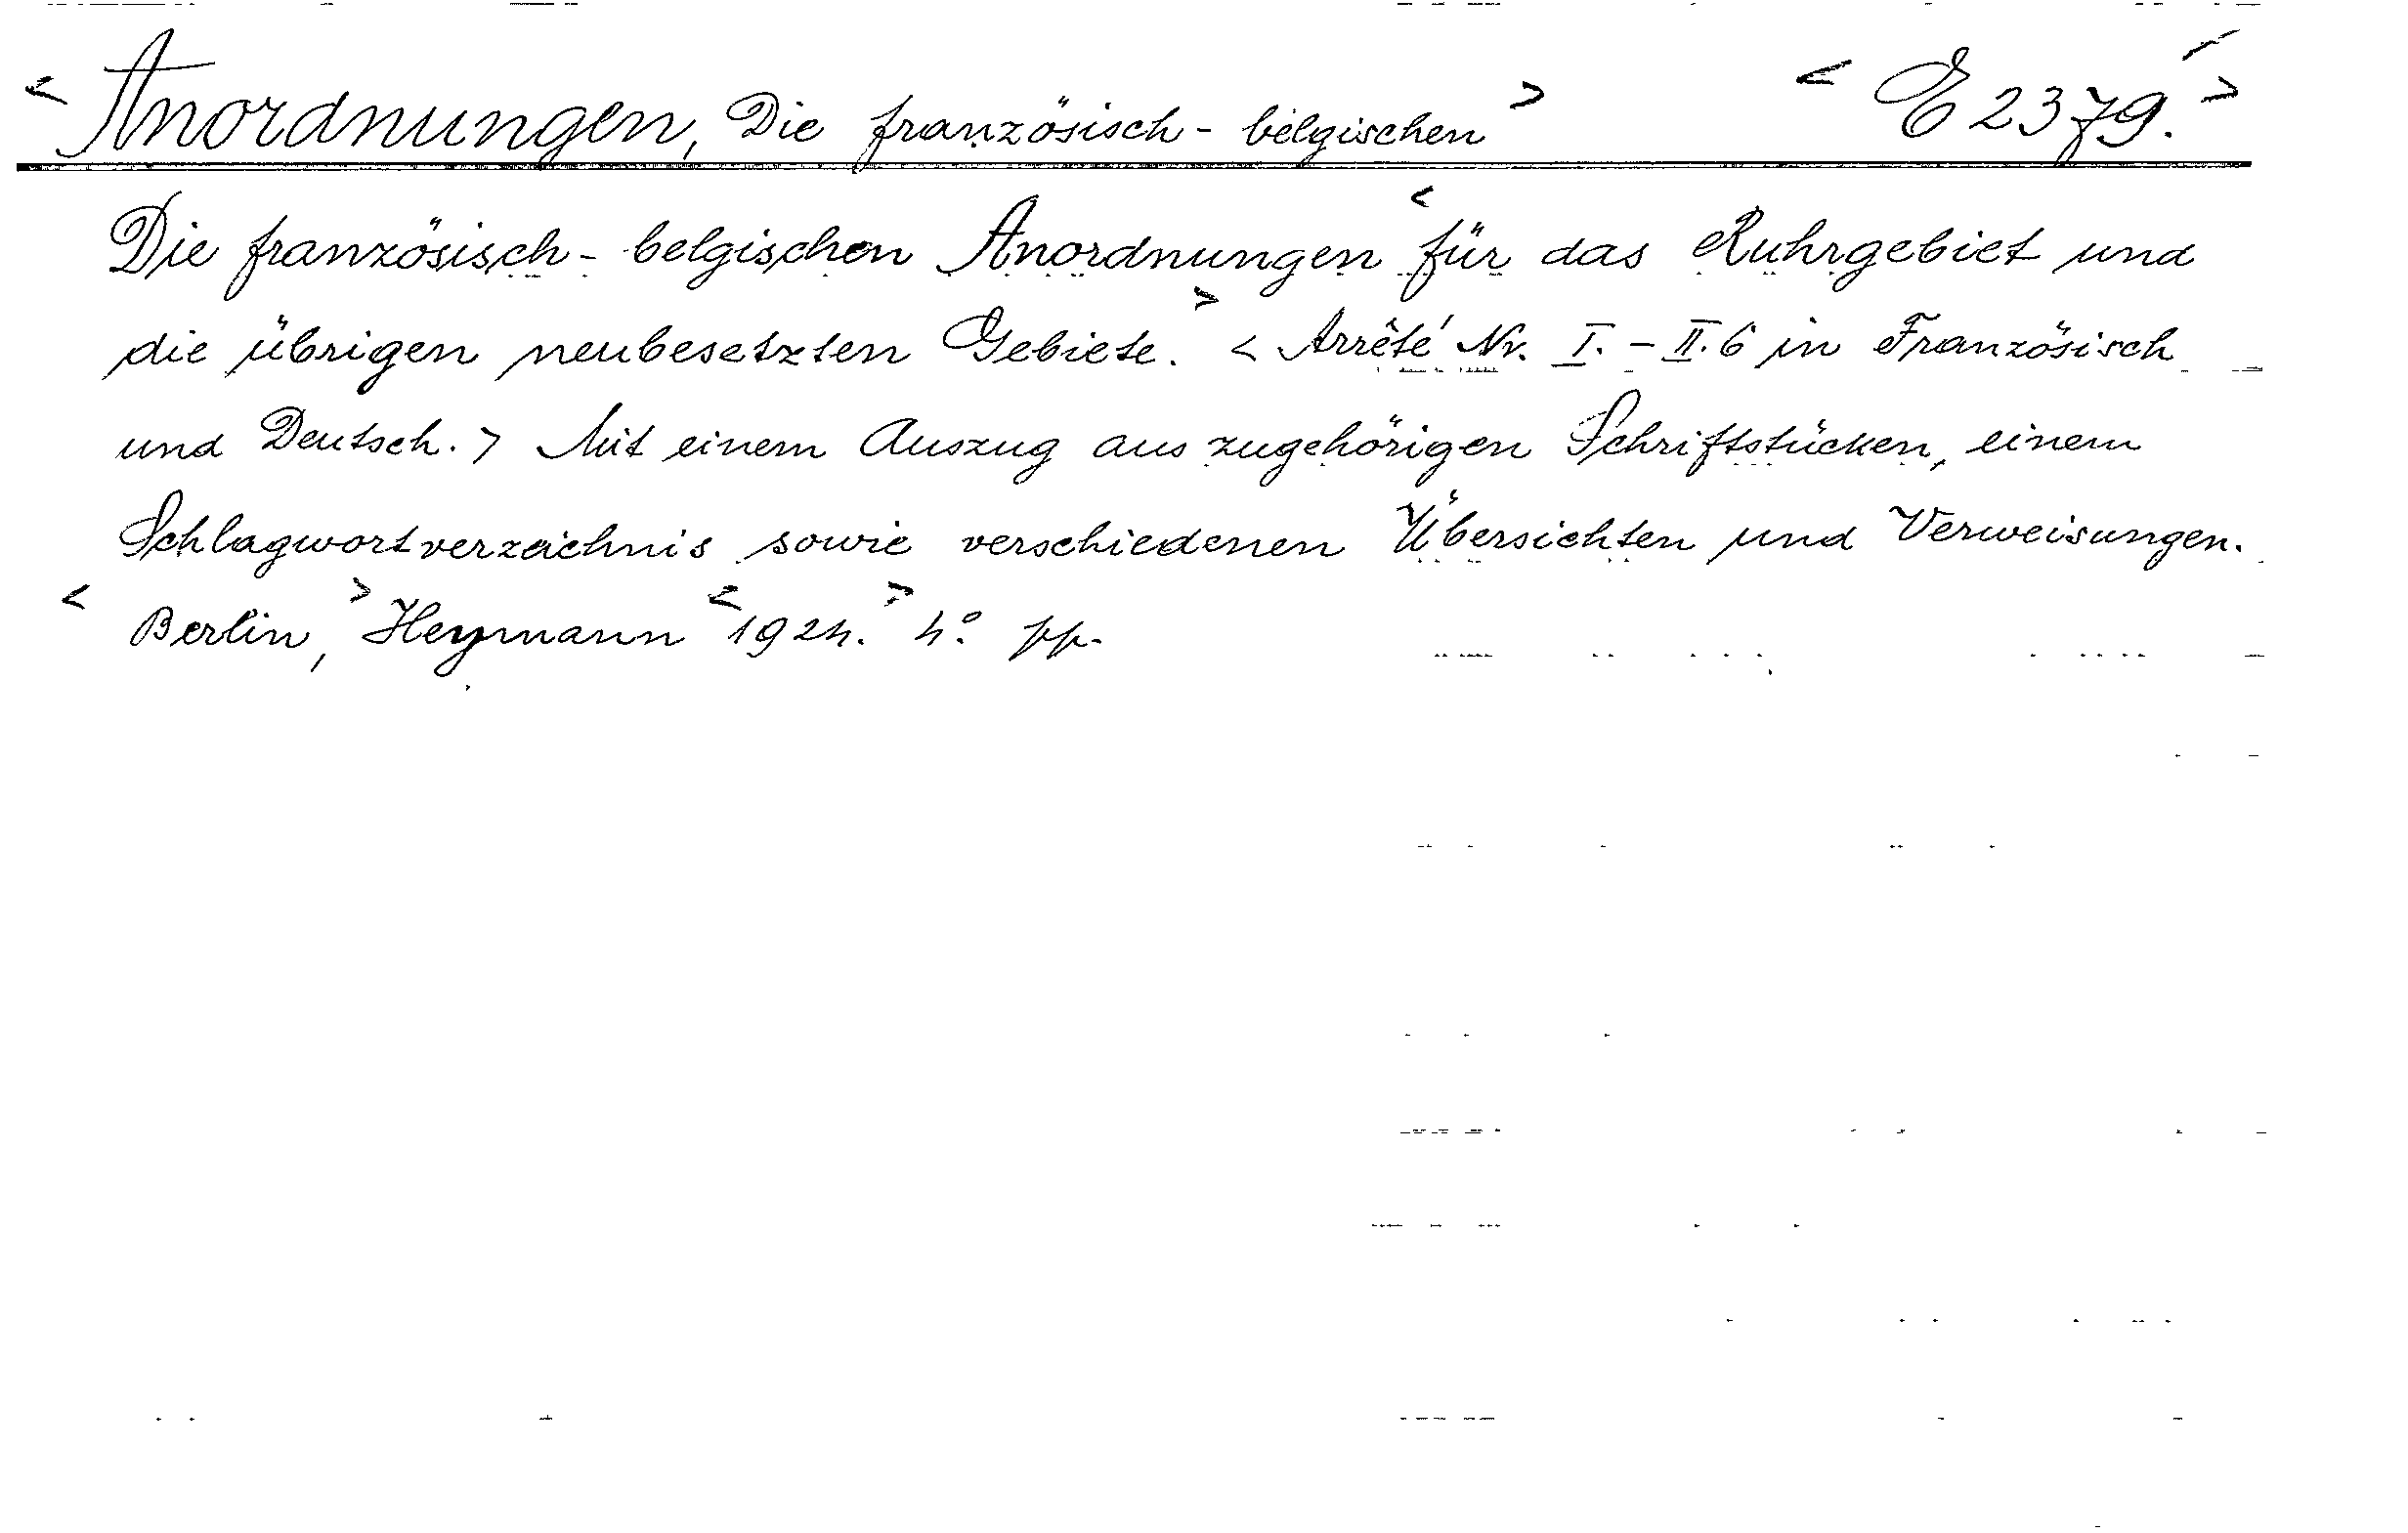 < Anordnungen, Die französisch-belgischen > < E 2379. >
Die französisch-belgischen Anordnungen < für das Ruhrgebiet und
die übrigen neubesetzten Gebiete. > < Arrêté Nr. I. - II. 6 in Französisch
und Deutsch. > Mit einem Auszug aus zugehörigen Schriftstücken, einem
Schlagwortverzeichnis sowie verschiedenen Übersichten und Verweisungen.
< Berlin, > Heymann < 1924. > 4° pp.